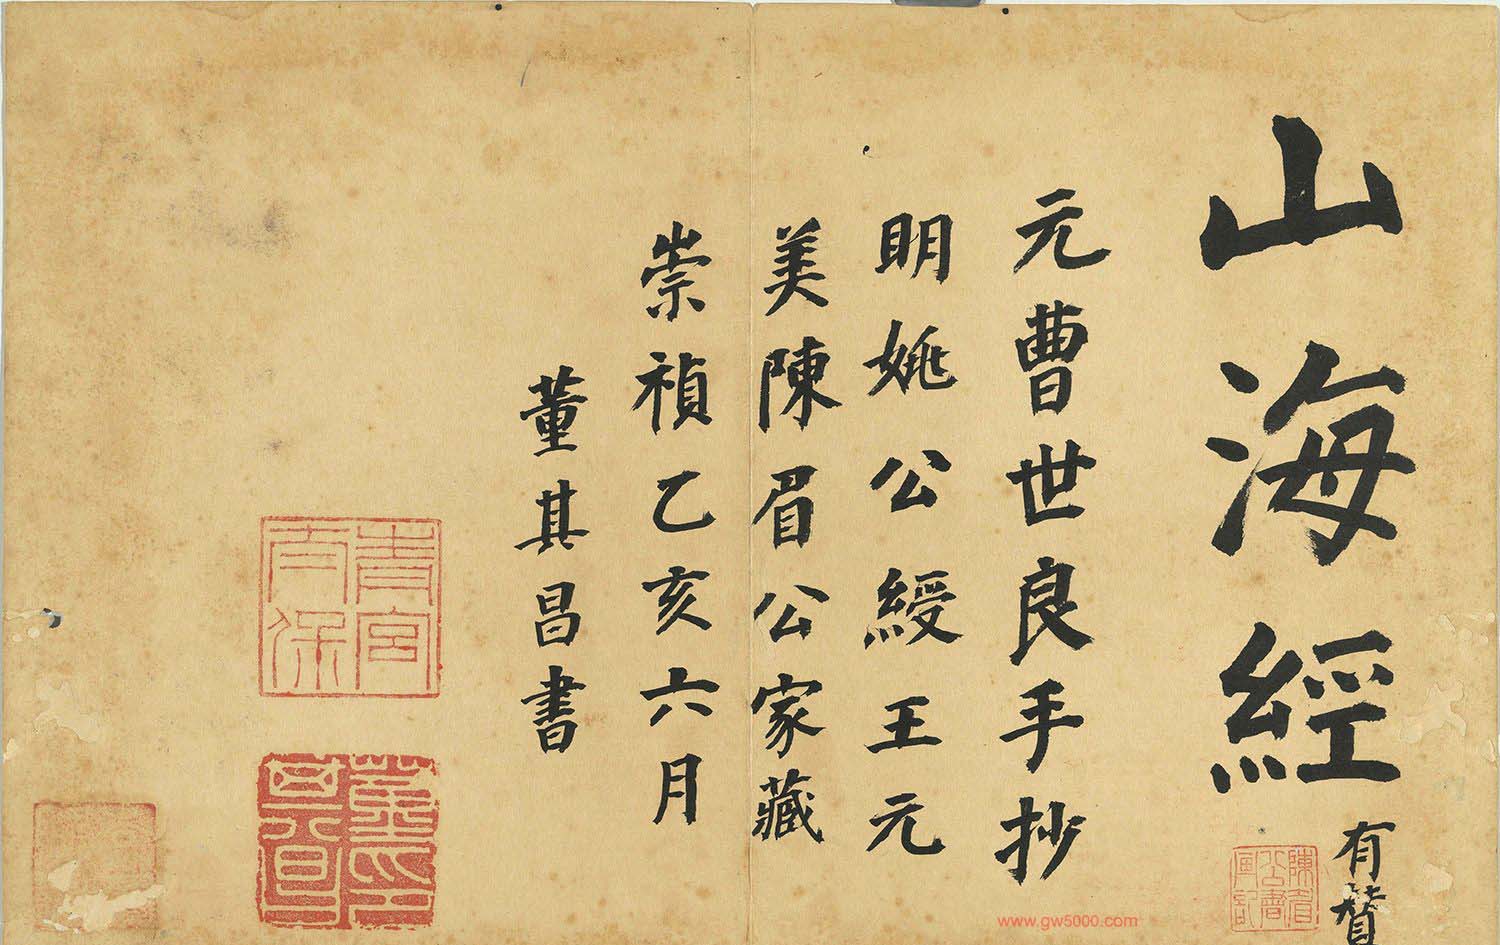 山海經
有贊
陳眉公書
元曹世良手抄
明姚公綬王元
美陳眉公家藏
崇禎乙亥六月
董其昌書
青宮太保
www.gw5000.com